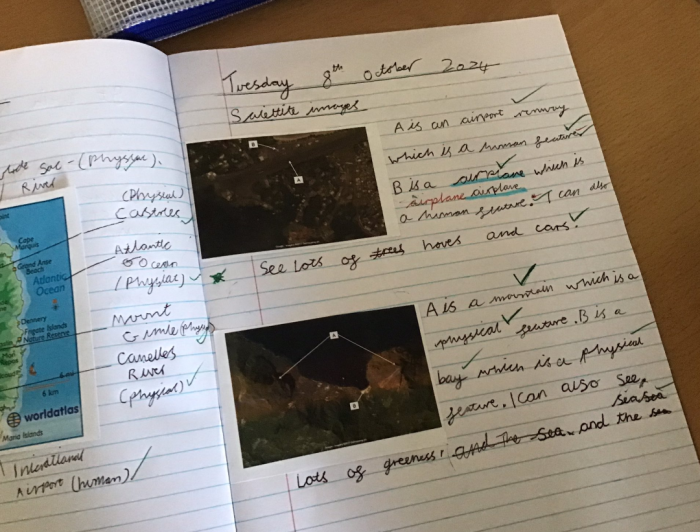 (Physac).
River
(Physical)
Castries
Atlantic
Ocean
(Physiac)
Mount
Gimie (physi
Canelles
River
(physical)
Cape
Marquis
Grand Anse
Beach
Atlantic
Ocean
Dennery
Frigate Islands
Nature Reserve
6 km
worldatlas
Maria Islands
Airport (human)
Tuesday 8th October 2024
Satettite images
A is an airport runway
which is a human feature
B is a airplane which is
airplane airplane
a human feature. I can also
See Lots of trees hoves and cars.
B
A
A is a mountain which is a
physical feature. B is a
bay which is a physical
feature. I can also see
sea sea
Lots of greeness, and the sea. and the sea
A
B